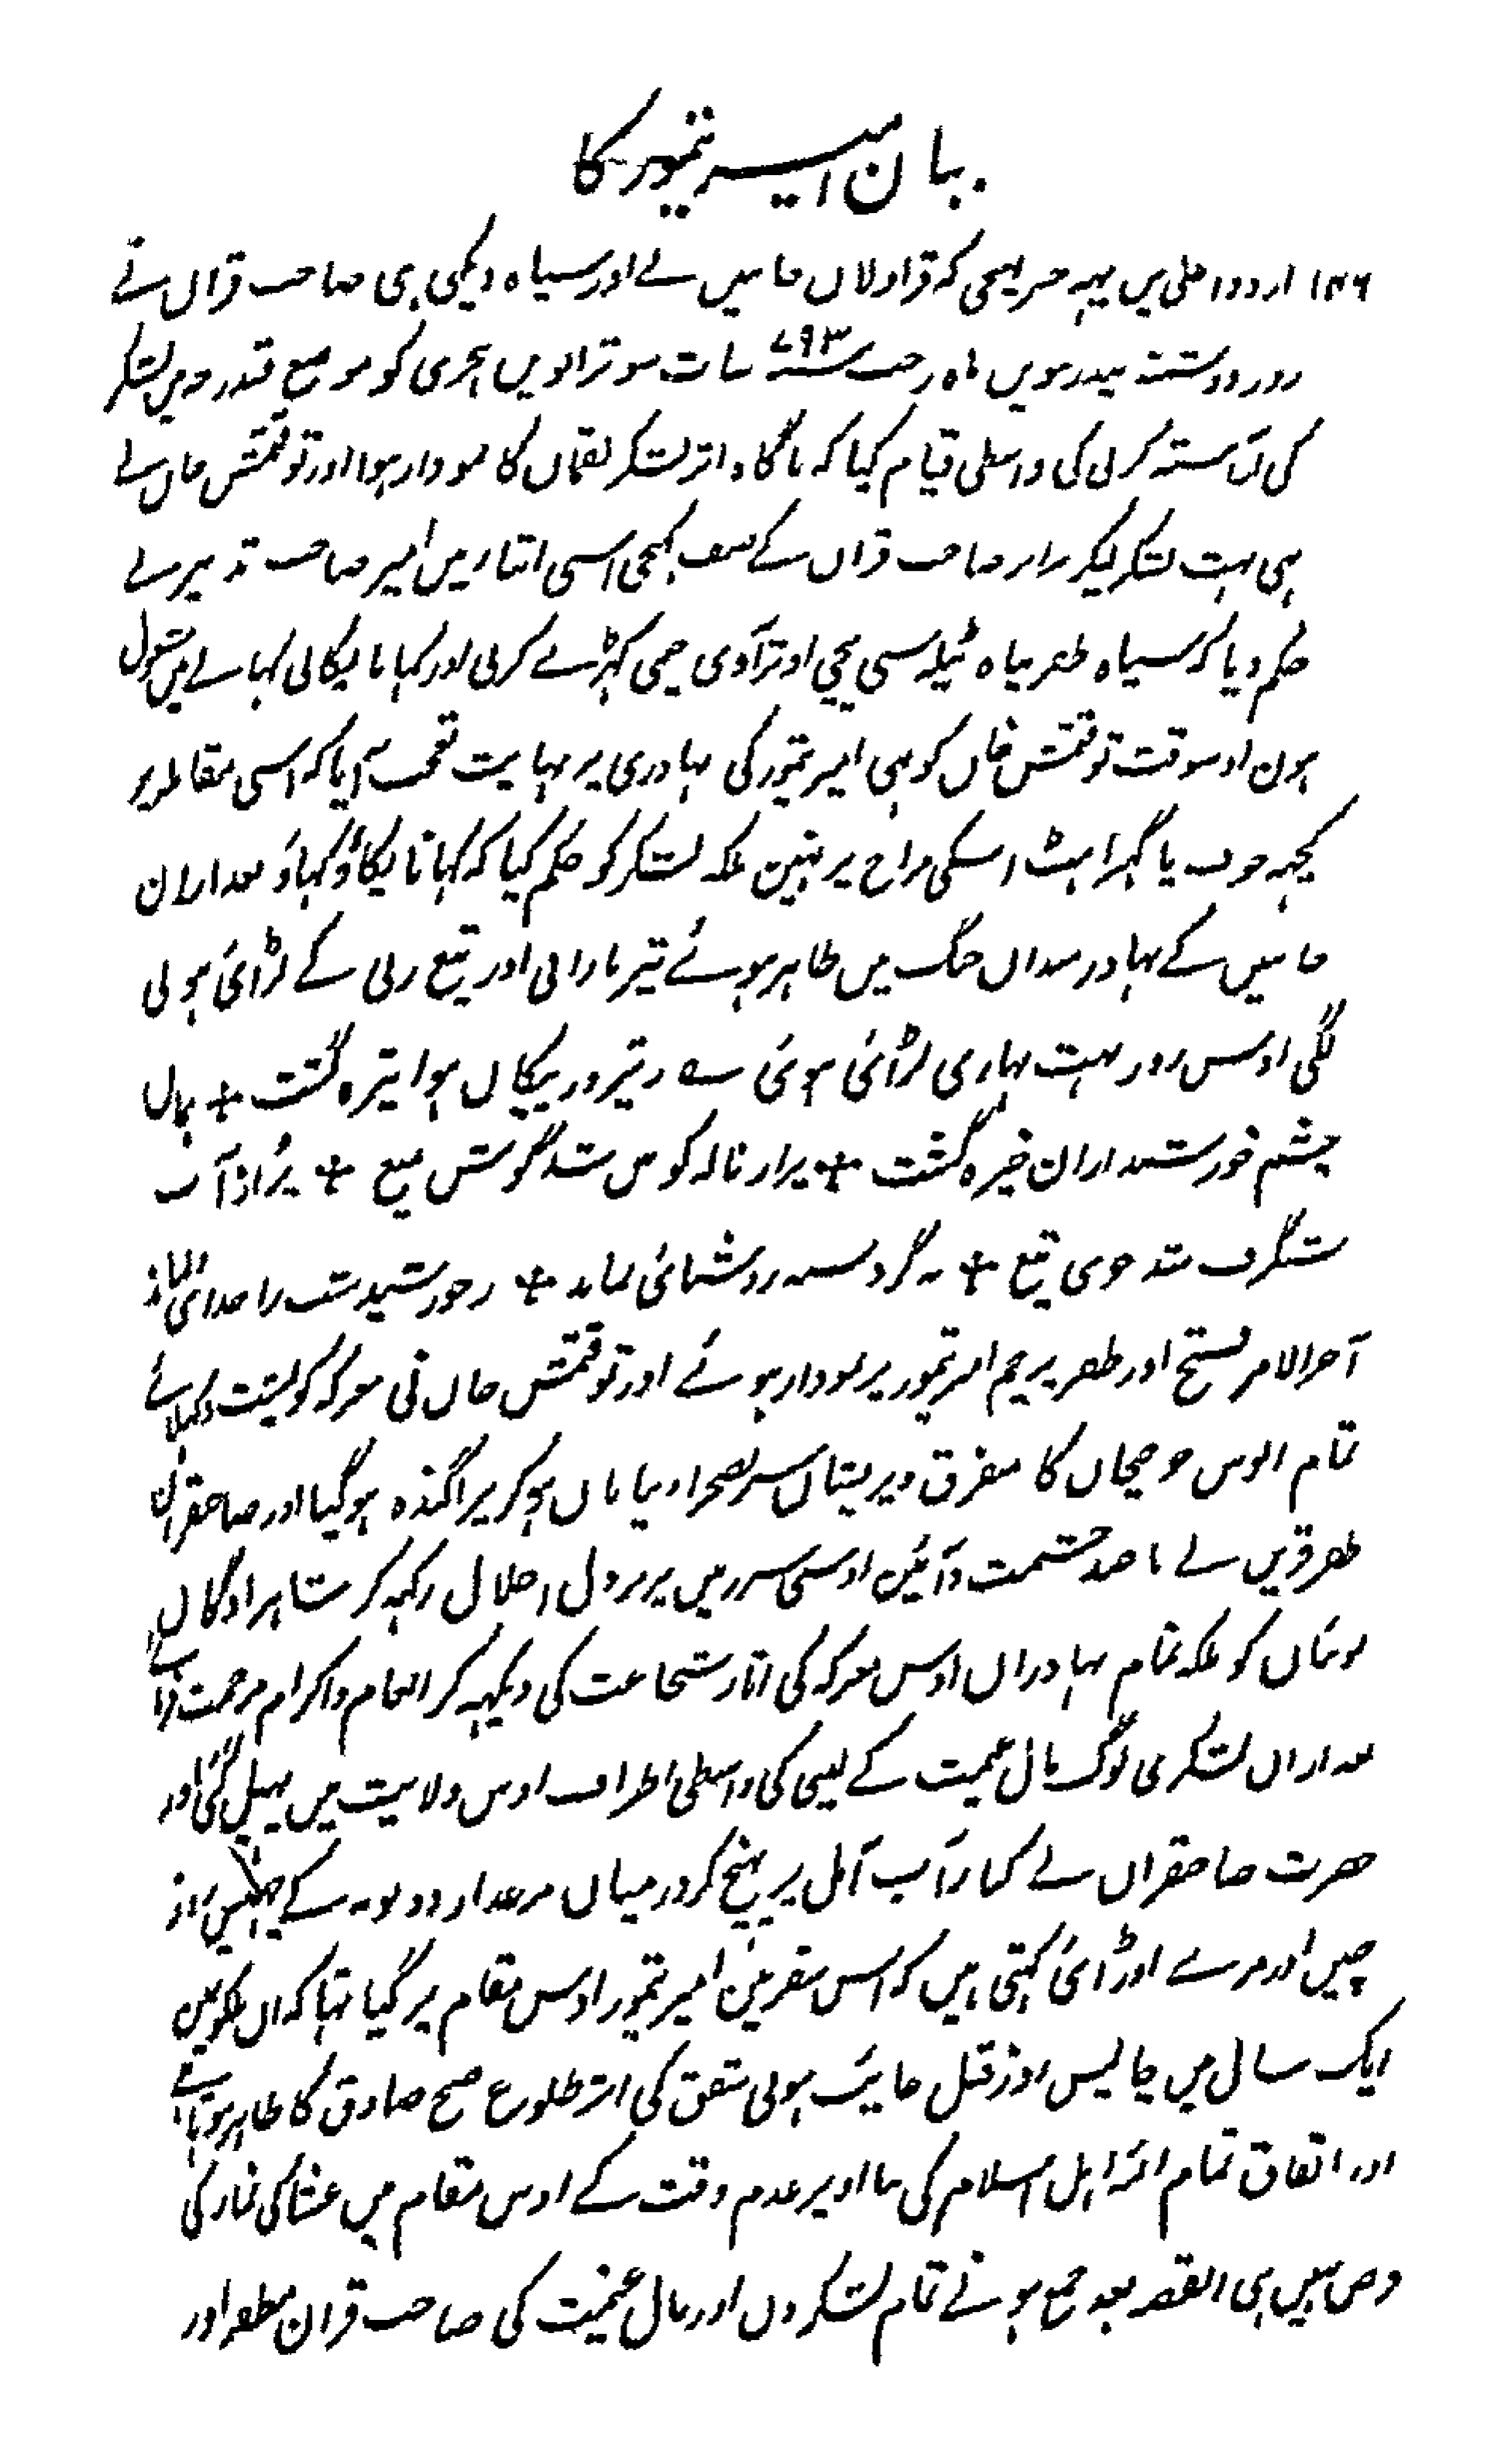 بیان امیر تیمور کا
۱۴۶ اردو اعلی میں یہہ خبر پہنچی کہ قراولان جانبین نے اور سپاہ دیکھی ہی صاحب قران نے
روز دوشنبہ پندرہویں ماہ رجب سنہ ۷۹۳ سات سو ترانویں ہجری کو موضع قندرچہ میں لشکر
کی آراستہ کرنی کی واسطی قیام کیا کہ ناگاہ اثر لشکر لقمان کا نمودار ہوا اور توقتمش خان نے
ہی بہت لشکر لیکر برابر صاحب قران کے صف کہنچی اسی اثنا میں امیر صاحب تدبیر نے
حکم دیا کہ سپاہ ظفر پناہ ٹیلہ سی نیچی اوتر آوی خیمی کہڑے کرنی اور کہانا پکانی کہانے میں مشغول
ہون اوسوقت توقتمش خان کو ہی امیر تیمور کی بہادری پر نہایت تعجب آیا کہ اسی مقابلہ پر
کچہہ خوف یا گہبراہٹ اسکی مزاج پر نہین بلکہ لشکر کو حکم کیا کہ کہانا پکاؤ کہاؤ بعد ازان
جانبین کے بہادر میدان جنگ میں ظاہر ہوئے تیر بارانی اور تیغ زنی کے لڑائی ہونی
لگی اوس روز بہت بہاری لڑائی ہوئی ے ز تیر و ز پیکان ہوا تیرہ گشت + ہمان
چشم خورشید ازان خیرہ گشت + پر از نالہ کوس شد گوش میغ + پر از آب
شنگرف شد جوی تیغ + بہ گرد سپہ روشنائی نماند + ز خورشید شب را جدائی نماند
آخر الامر فتح اور ظفر پرچم امیر تیمور پر نمودار ہوئے اور توقتمش خان نی معرکہ کو پشت دکہلائے
تمام الوس جوجی خان کا متفرق و پریشان سر بصحرا و بیابان ہوکر پراگندہ ہوگیا اور صاحبقران
ظفر قرین نے باصد حشمت و آئین اوسی سرزمین پر نزول اجلال رکہہ کر شاہزادگان
نوینان کو بلکہ تمام بہادران اوس معرکہ کی آثار شجاعت کی دیکہہ کر انعام و اکرام مرحمت فرمائے
بعد ازان لشکری لوگ مال غنیمت کے لینی کی واسطی اطراف اوس ولایت میں پہیل گئی اور
حضرت صاحبقران نے کنار آب آمل پر پہنچ کر درمیان مرغزار کے چھبیس روز
چین اور مزے اوڑائی کہتی ہیں کہ اس سفر مین امیر تیمور اوس مقام پر گیا تہا کہ ان ملکون میں
ایک سال میں چالیس روز قبل غائب ہونی شفق کی اثر طلوع صبح صادق کا ظاہر ہوتا ہے
اور اتفاق تمام ائمہ اہل اسلام کی بنا اوپر عدم وقت کے اوس مقام میں عشا کی نماز کی
فرض نہیں ہی القصہ بعد جمع ہونے تمام لشکروں اور مال غنیمت کی صاحب قران مظفر اور